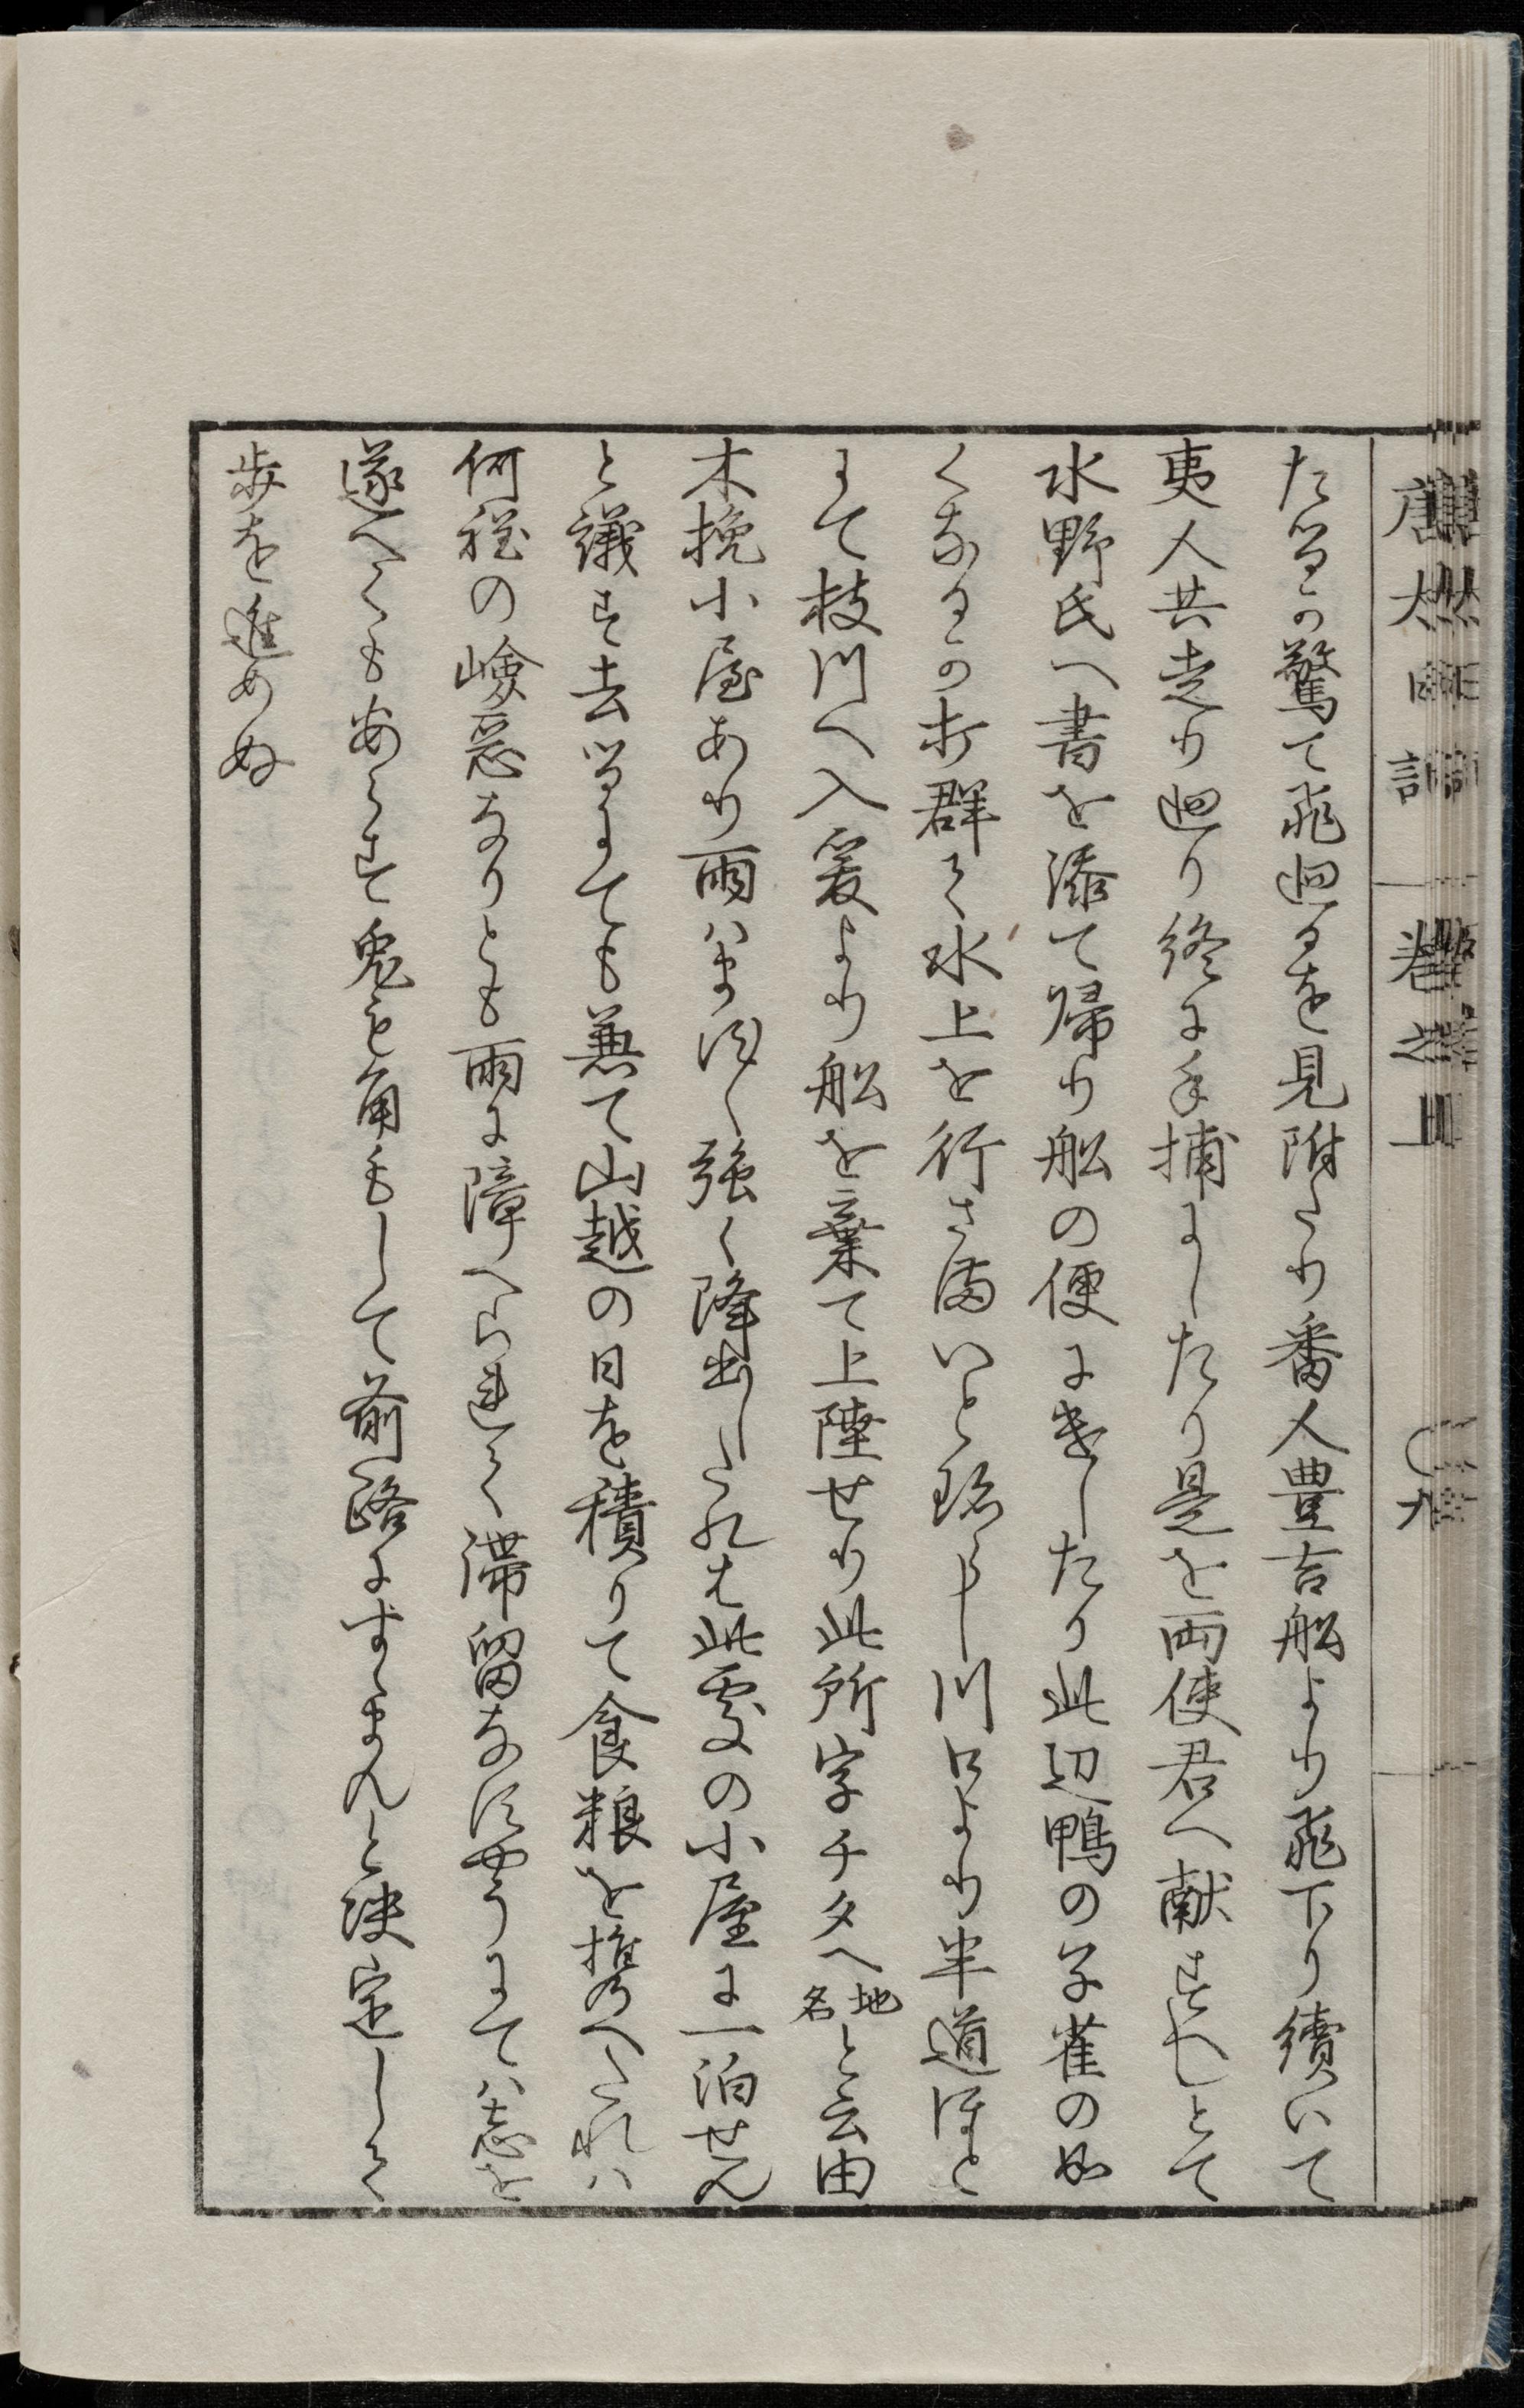 たるか驚て飛廻るを見附たり番人豊吉船より飛下り續いて
夷人共走り廻り終に手捕にしたり是を両使君へ献すへしとて
水野氏へ書を添て帰り船の便にきしたり此辺鴨の子雀の如
くなるか打群て水上を行さまいと珍らし川口より半道ほと
にて枝川へ入爰より船を棄て上陸せり此所字チタヘ地名と云由
木挽小屋あり雨ハます〱強く降出したれは此處の小屋に一泊せん
と議す去るにても兼て山越の日を積りて食粮を携へたれハ
何程の嶮惡なりとも雨に障へられて滞留なすやうにてハ志を
遂へくもあらす兎も角もして前路にすゝまんと决定して
歩を進めぬ